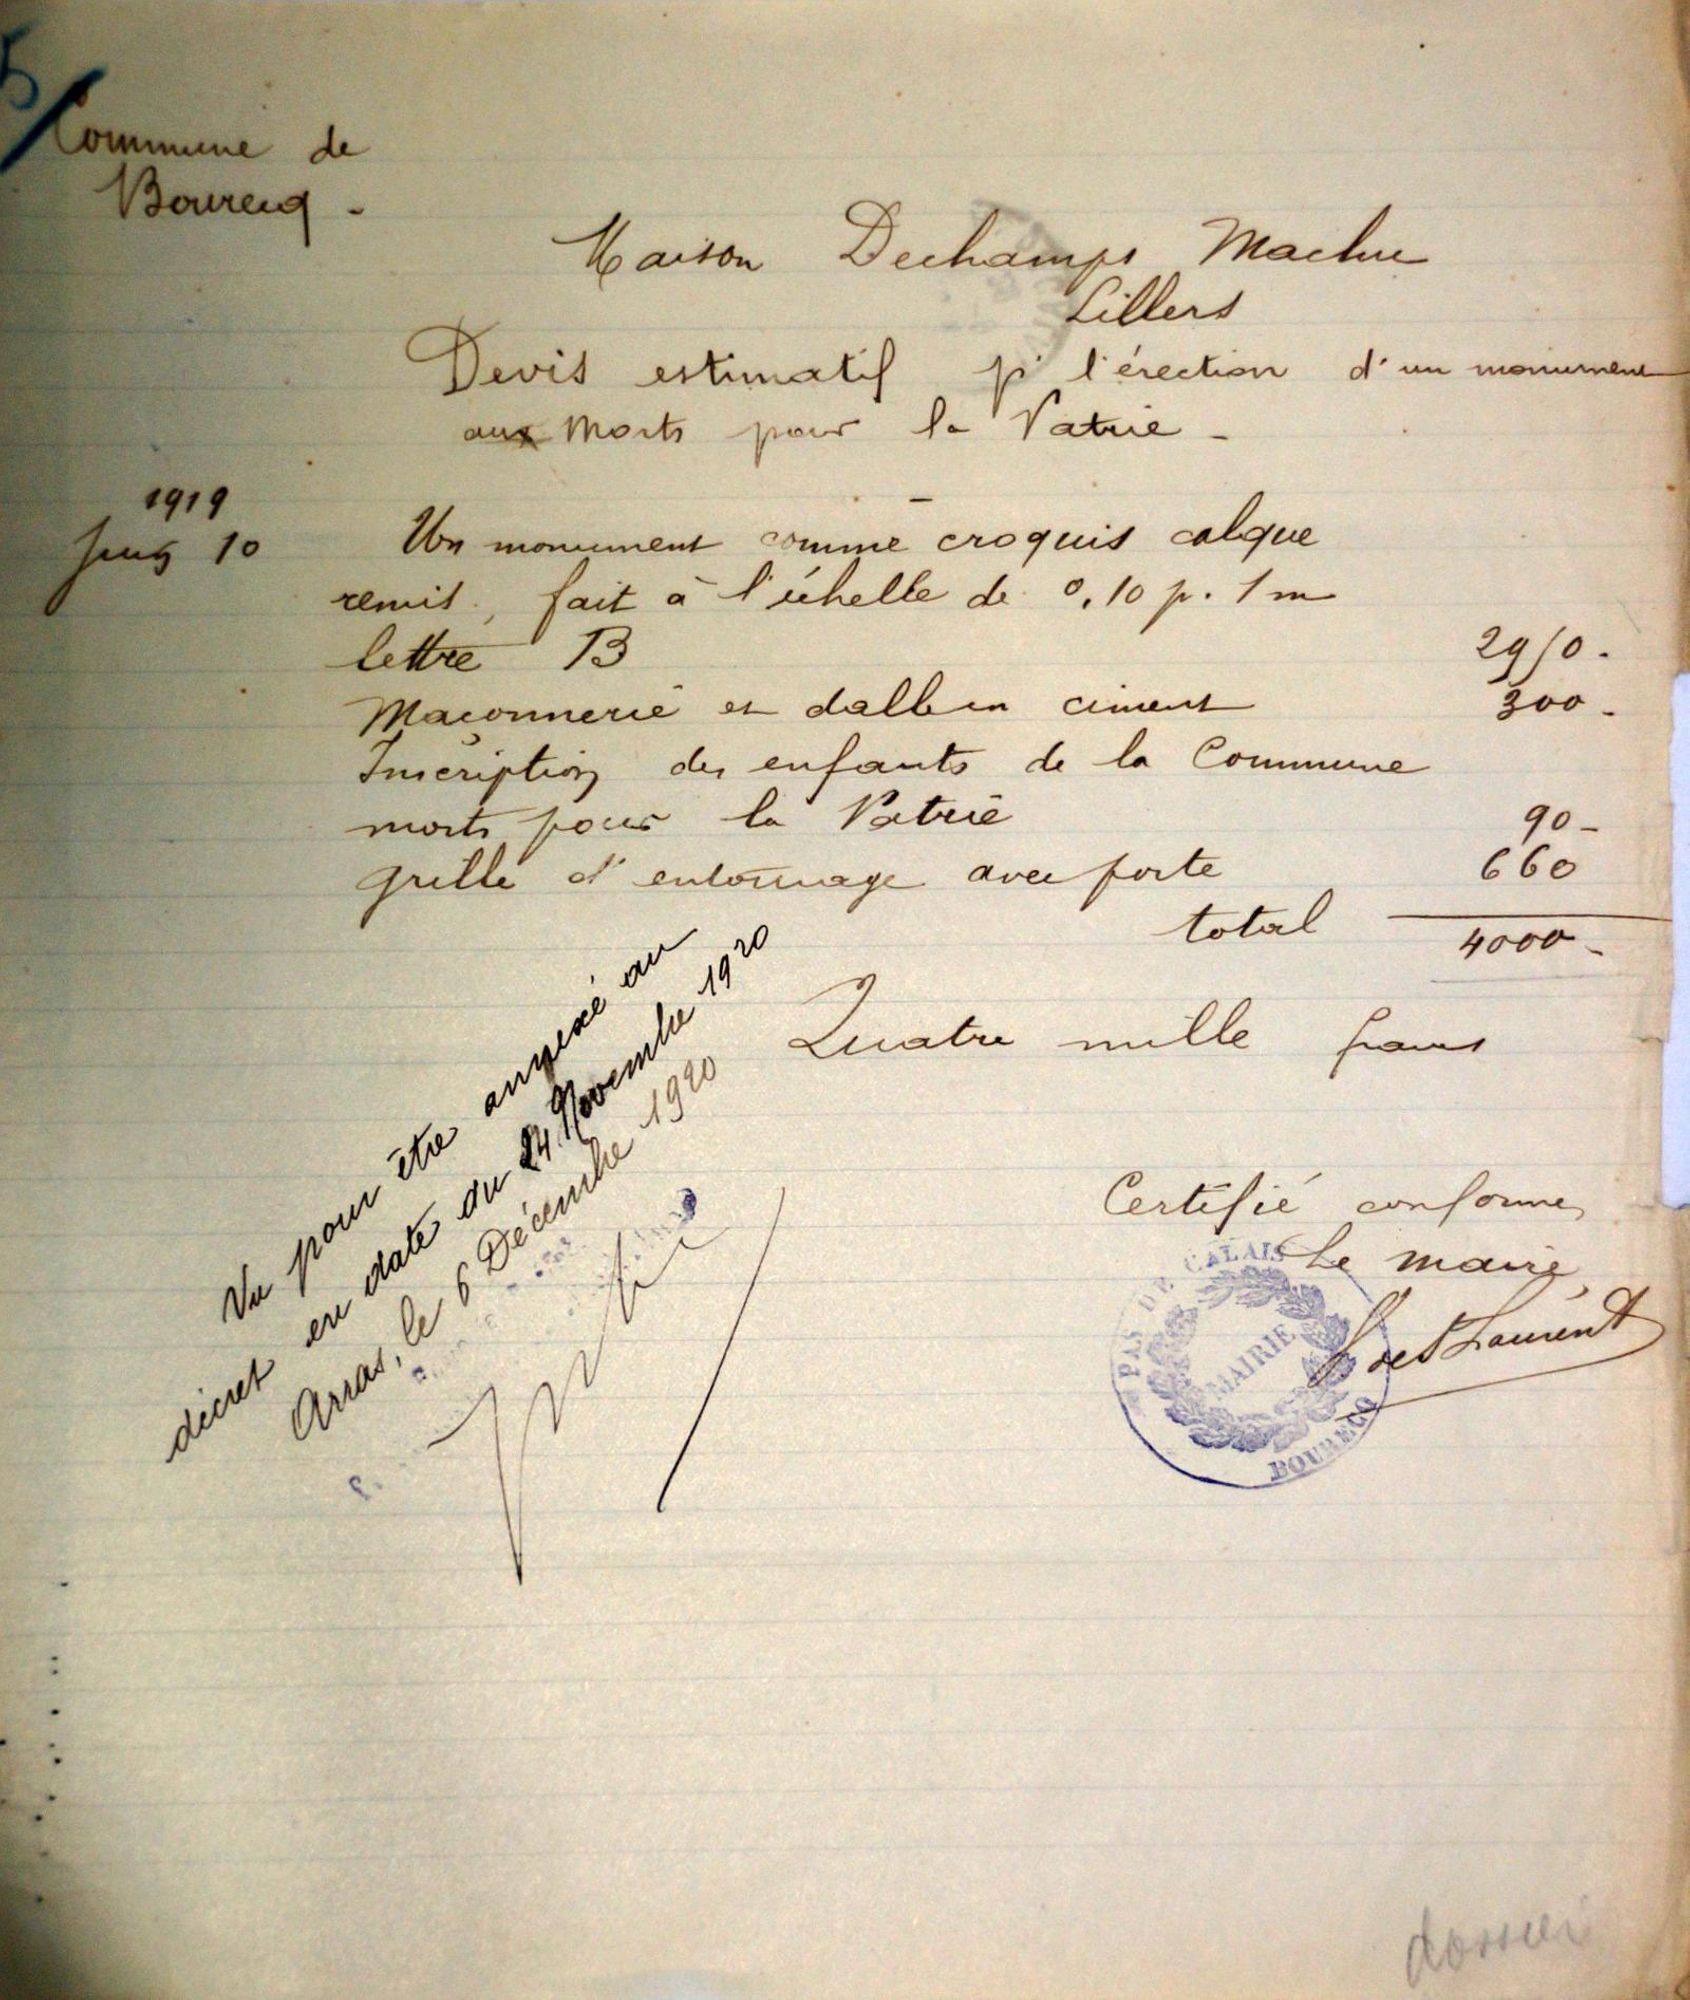 5/
Commune de
Bourecq -
Maison Dechamps Machue
Lillers
Devis estimatif pr l'érection d'un monument
aux Morts pour la Patrie -
1919
Juin 10
Un monument comme croquis calque
remis, fait à l'échelle de 0,10 p. 1 m
lettre B 2950 -
Maçonnerie et dalle en ciment 300 -
Inscription des enfants de la Commune
morts pour la Patrie 90 -
grille d'entourage avec porte 660
total 4000 -
Quatre mille francs
Vu pour être annexé au
décret en date du 24 Novembre 1920
Arras, le 6 Décembre 1920
Certifié conforme
Le maire
PAS DE CALAIS
MAIRIE
BOURECQ
dossier